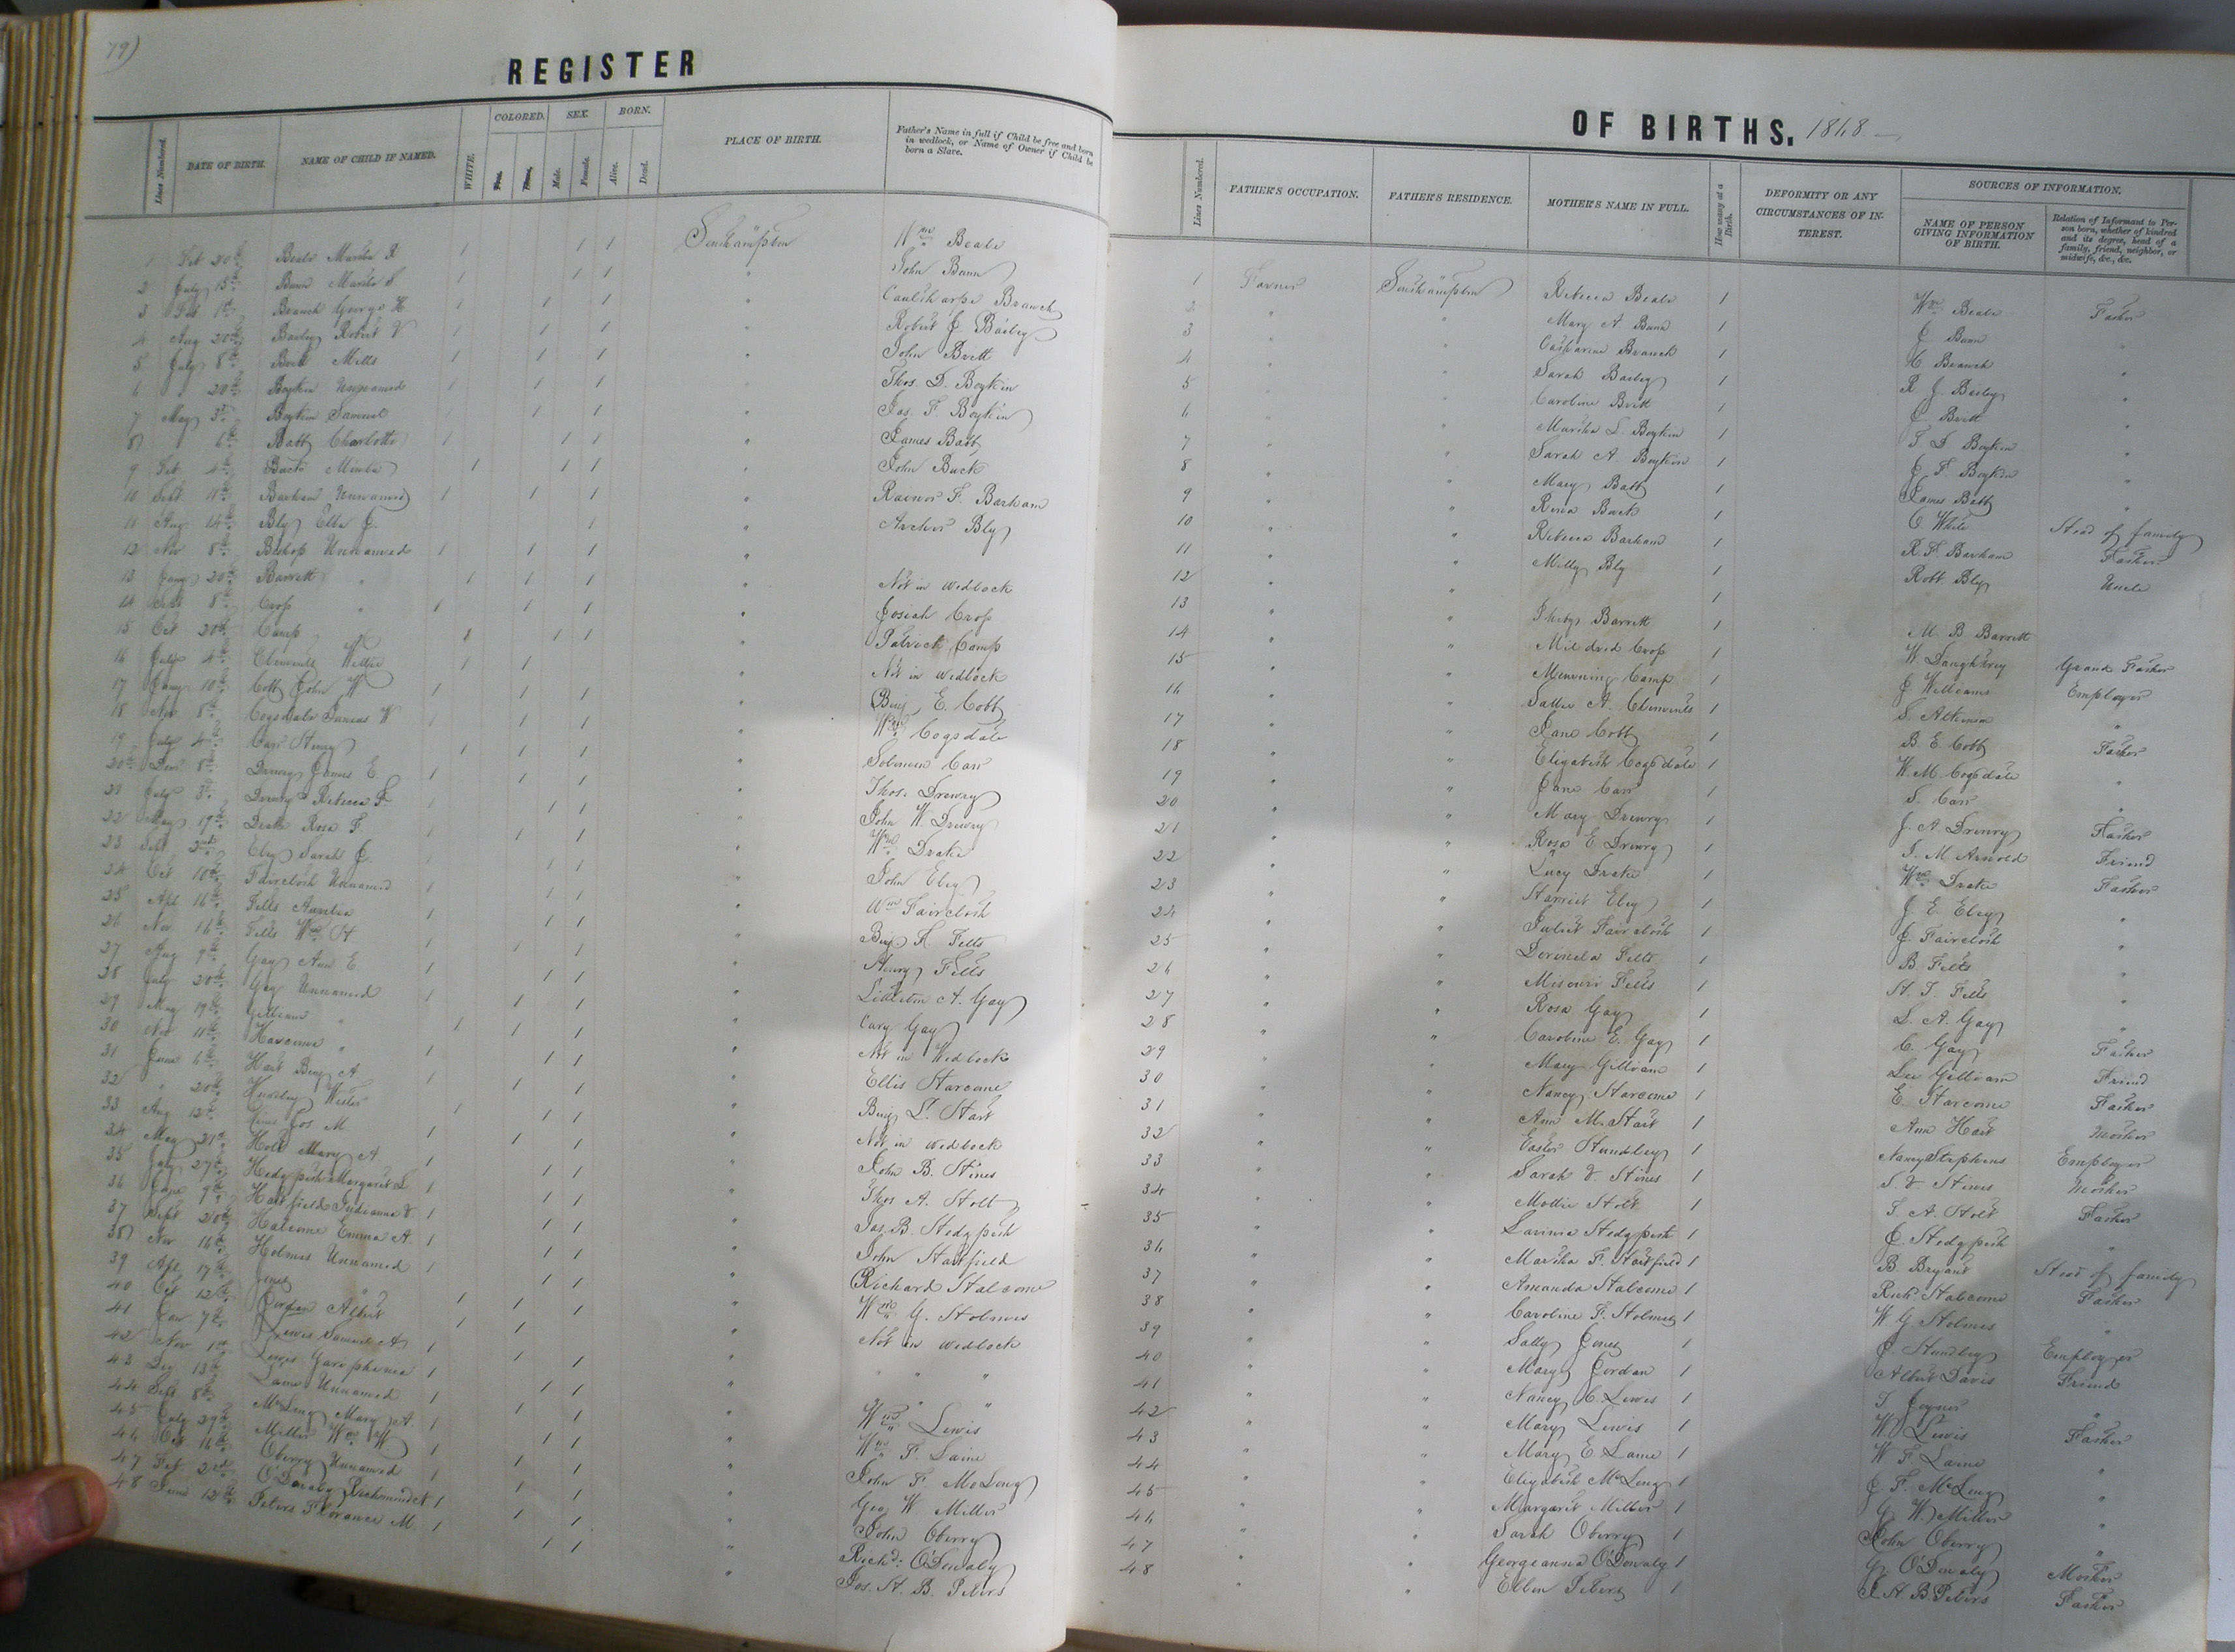 79)
REGISTER
Lines Numbered.
DATE OF BIRTH.
NAME OF CHILD IF NAMED.
WHITE.
COLORED.
SEX.
Male.
Female.
BORN.
Alive.
Dead.
PLACE OF BIRTH.
Father's Name in full if Child be free and born
in wedlock, or Name of Owner if Child be
born a Slave.
1 Feb 20th Beale Martha R Southampton Wm Beale
2 July 15th Bunn Martha S " John Bunn
3 Feb 1st Branch George H " Branch
4 Aug 20th Bailey Robert V " Robert J. Bailey
5 July 8th Britt Mills " John Britt
6 " 28th Boykin Unnamed " Thos. D. Boykin
7 May 3d Boykin Samuel " Jas. F. Boykin
8 6th Batty Charlotte " James Batty
9 Feb 4th Buck " John Buck
10 Sept 11th Barham Unnamed " F. Barham
11 Aug 14th Bly Ella J. " Archer Bly
12 Nov 8th Bishop Unnamed "
13 20th Barrett " " Not in wedlock
14 8th Crop " " Josiah Crop
15 Oct 20th Camp " " Patrick Camp
16 July 4th Willie " Not in wedlock
17 10th Cobb John W " Benj. E. Cobb
18 Nov 8th Cogsdale W " Wm Cogsdale
19 July 4th Carr Henry " Solomon Carr
20 Dec 8th Drewry James E. " Thos. Drewry
21 July 3d Drewry Rebecca F. " John W. Drewry
22 May 19th Drake Rosa F " Wm Drake
23 Sept 2nd Eley Sarah J. " John Eley
24 Oct 10th Faircloth Unnamed " Wm Faircloth
25 Apl 16th Felts Aurelia " Benj H. Felts
26 Nov 16th Felts Wm H " Henry Felts
27 Aug 9th Gay Ann E " A. Gay
28 July 20th Gay Unnamed " Cary Gay
29 May 19th Gilliam " " Not in Wedlock
30 Nov 11th Harcome " " Ellis Harcome
31 June 6th Hart Benj A. " Benj L. Hart
32 " 20th Hundley " Not in wedlock
33 Aug 12th Hines Jos M " John B. Hines
34 May 21st Holt Mary A. " Thos A. Holt
35 July 27th Hedgpeth Margaret L. " Jas. B. Hedgpeth
36 June 9th Hartfield Indianna V. " John Hartfield
37 Sept 20th Halcome Emma A. " Richard Halcome
38 Nov 16th Holmes Unnamed " Wm G. Holmes
39 Apl 17th Jones " " Not in wedlock
40 Oct 12th Jordan Albert " " "
41 7th Lewis Samuel A " " "
42 Nov 1st Lewis " Wm Lewis
43 13th Laine Unnamed " Wm F. Laine
44 Sept 8th McLeny Mary A. " John F. McLeny
45 July 29th Miller Wm W " Geo W. Miller
46 Oct 16th Oberry Unnamed " John Oberry
47 Feb 2nd Richmond " Richd:
48 June 12th Peters Florance M. " Jos. H. B. Peters
OF BIRTHS, 1868
Lines Numbered.
FATHER'S OCCUPATION.
FATHER'S RESIDENCE.
MOTHER'S NAME IN FULL.
How many at a Birth.
DEFORMITY OR ANY
CIRCUMSTANCES OF IN-
TEREST.
SOURCES OF INFORMATION.
NAME OF PERSON
GIVING INFORMATION
OF BIRTH.
Relation of Informant to Per-
son born, whether of kindred
and its degree, head of a
family, friend, neighbor, or
midwife, &c., &c.
1 Farmer Southampton Rebecca Beale 1 Wm Beale Father
2 " " Mary A. Bunn 1 J Bunn "
3 " " Catharine Branch 1 C Branch "
4 " " Sarah Bailey 1 R. J. Bailey "
5 " " Caroline Britt 1 J Britt "
6 " " Martha L. Boykin 1 T D Boykin "
7 " " Sarah A. Boykin 1 J. F. Boykin "
8 " " Mary Batty 1 James Batty "
9 " " Buck 1 White Head of family
10 " " Rebecca Barham 1 R. F. Barham Father
11 " " Milly Bly 1 Robt Bly Uncle
12 " " 1
13 " " Barrett 1 M. B Barrett
14 " " Mildred Crop 1 W Daughtrey Grand Father
15 " " Camp 1 J Williams Employer
16 " " Sallie A. 1 S. Atkinson "
17 " " Jane Cobb 1 B. E. Cobb Father
18 " " Elizabeth Cogsdale 1 W. M. Cogsdale "
19 " " Jane Carr 1 S. Carr "
20 " " Mary Drewry 1 J. A Drewry Father
21 " " Rosa E Drewry 1 T. M. Arnold Friend
22 " " Lucy Drake 1 Wm Drake Father
23 " " Harriet Eley 1 J. E. Eley "
24 " " Juliet Faircloth 1 J. Faircloth "
25 " " Felts 1 B. Felts "
26 " " Missouri Felts 1 H. T. Felts "
27 " " Rosa Gay 1 L. A. Gay "
28 " " Caroline E. Gay 1 C. Gay Father
29 " " Mary Gilliam 1 Gilliam Friend
30 " " Nancy Harcome 1 E. Harcome Father
31 " " Ann M. Hart 1 Ann Hart Mother
32 " " Easter Hundley 1 Nancy Stephens Employer
33 " " Sarah V. Hines 1 S. V. Hines Mother
34 " " Mollie Holt 1 T. A. Holt Father
35 " " Lavinia Hedgpeth 1 J. Hedgpeth "
36 " " Martha F. Hartfield 1 B Bryant Head of family
37 " " Amanda Halcome 1 Rich. Halcome Father
38 " " Caroline F. Holmes 1 W. G. Holmes "
39 " " Sally Jones 1 J Hundley Employer
40 " " Mary Jordan 1 Albert Davis Friend
41 " " Nancy C. Lewis 1 T Joyner "
42 " " Mary Lewis 1 W. Lewis Father
43 " " Mary E Laine 1 W F. Laine "
44 " " Elizabeth McLeny 1 J F. McLeny "
45 " " Margaret Miller 1 G W. Miller "
46 " " Sarah Oberry 1 John Oberry "
47 " " Georgeanna 1 G. Mother
48 " " Ellen Peters 1 J H. B. Peters Father